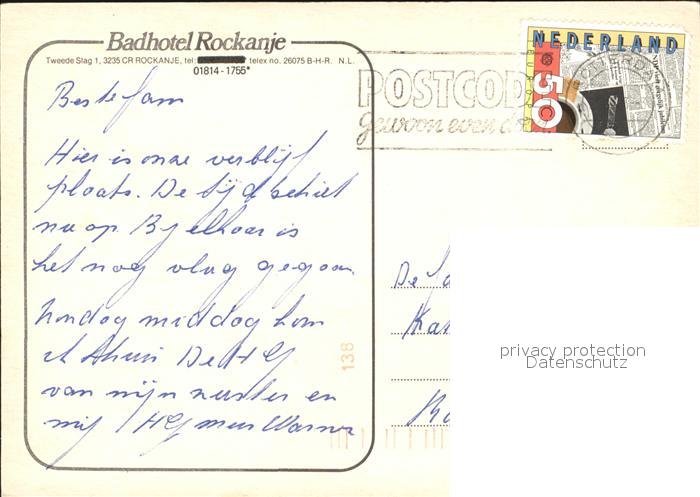 Badhotel Rockanje
Tweede Slag 1, 3235 CR ROCKANJE, tel: telex no. 26075 B-H-R. N.L.
01814 - 1755*
NEDERLAND
50 c
POSTCODE
gewoon even d
Beste fam
Hier is onze verblijf
plaats. De tijd schiet
nu op Bij elkaar is
het nog vlug gegaan
Zondag middag kom
ik thuis De HG
van mijn zuster en
mij HG mevr
De fa
Ka
138
privacy protection
Datenschutz